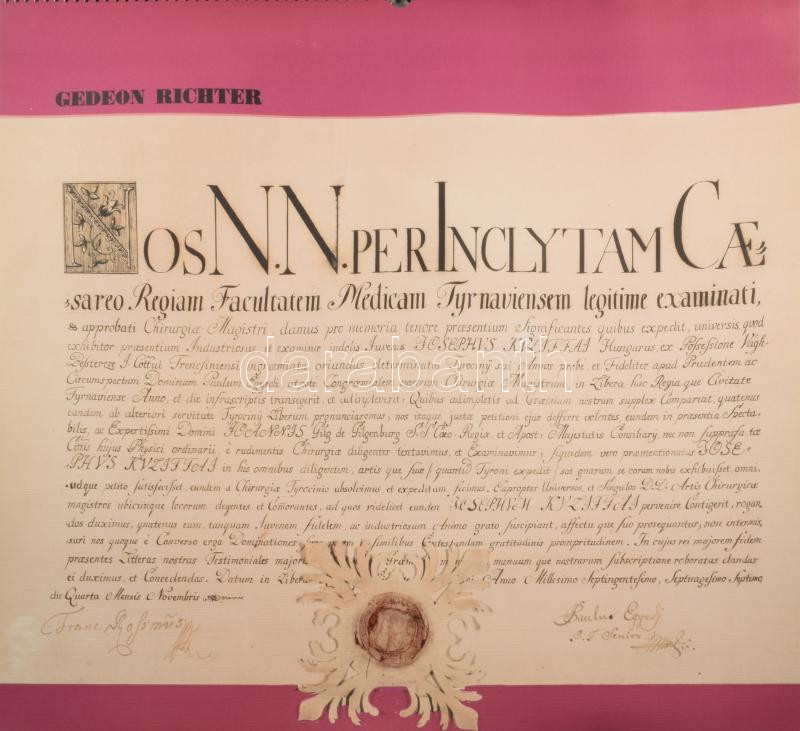 GEDEON RICHTER
NOS N. N. PER INCLYTAM CÆ-
sareo Regiam Facultatem Medicam Tyrnaviensem legitime examinati,
& approbati Chirurgiæ Magistri, damus pro memoria tenore præsentium Significantes quibus expedit, universis, quod
exhibitor præsentium Industriosus et examinæ indolis Juvenis JOSEPHVS KVZITTAI Hungarus, ex Possessione Vágh-
I. Cottui Trencsiniensi oriundus determinatos Tyrocinÿ sui Annos probe, et Fideliter apud Prudentem ac
Circumspectum Dominum Paulum Egyedi Chirurgiæ Magistrum, in Libera hac Regia que Civitate
Tyrnaviense Anno, et die infrascriptis transegerit, et adimpleverit: Quibus adimpletis ad Græmium nostrum supplex Comparuit, quatenus
eundem ab ulteriori servitute Tyrocinÿ Liberum pronunciaremus; nos itaque justæ petitioni ejus deferre volentes eundem in præsentia Specta-
bilis, ac Expertissimi Domini JOANNIS Gilg de Gilgenburg S. S. Cæs. Regiæ, et Apost: Majestatis Consiliarÿ, nec non suprafatæ
Cittis hujus Physici ordinarii, è rudimentis Chirurgiæ diligenter tentavimus, et Examinavimus; siquidem vero præmentionatus JOSE-
PHVS KVZITTAI in his omnibus diligentem, artis que suæ /quantum Tyroni expedit/ sat gnarum se coram nobis exhibuisset, omni-
udque petito satisfecisset, eundem a Chirurgiæ Tyrocinio absolvimus et expeditum fecimus. Eapropter Universos, et Singulos D.D. Artis Chirurgicæ
magistros ubicunque locorum degentes, et Comorantes, ad quos videlicet eundem JOSEPHVM KVZITTAI pervenire Contigerit, rogan-
dos duximus, quatenus eum, tanquam Juvenem fidelem, ac industriosum Animo grato suscipiant, affectu que suo prosequantur, non intermis-
suri nos quoque è Converso erga Dominationes similibus Contestandam gratitudinis promptitudinem. In cujus rei majorem fidem
præsentes Litteras nostras Testimoniales majori manuum que nostrarum Subscriptione roboratas dandas
ei duximus, et Concedendas. Datum in Libera Anno Millesimo Septingentesimo, Septuagesimo Septimo,
die Quarta Mensis Novembris
Franc: Rossmüs
Paulus Egyedi
Senior
darabanth